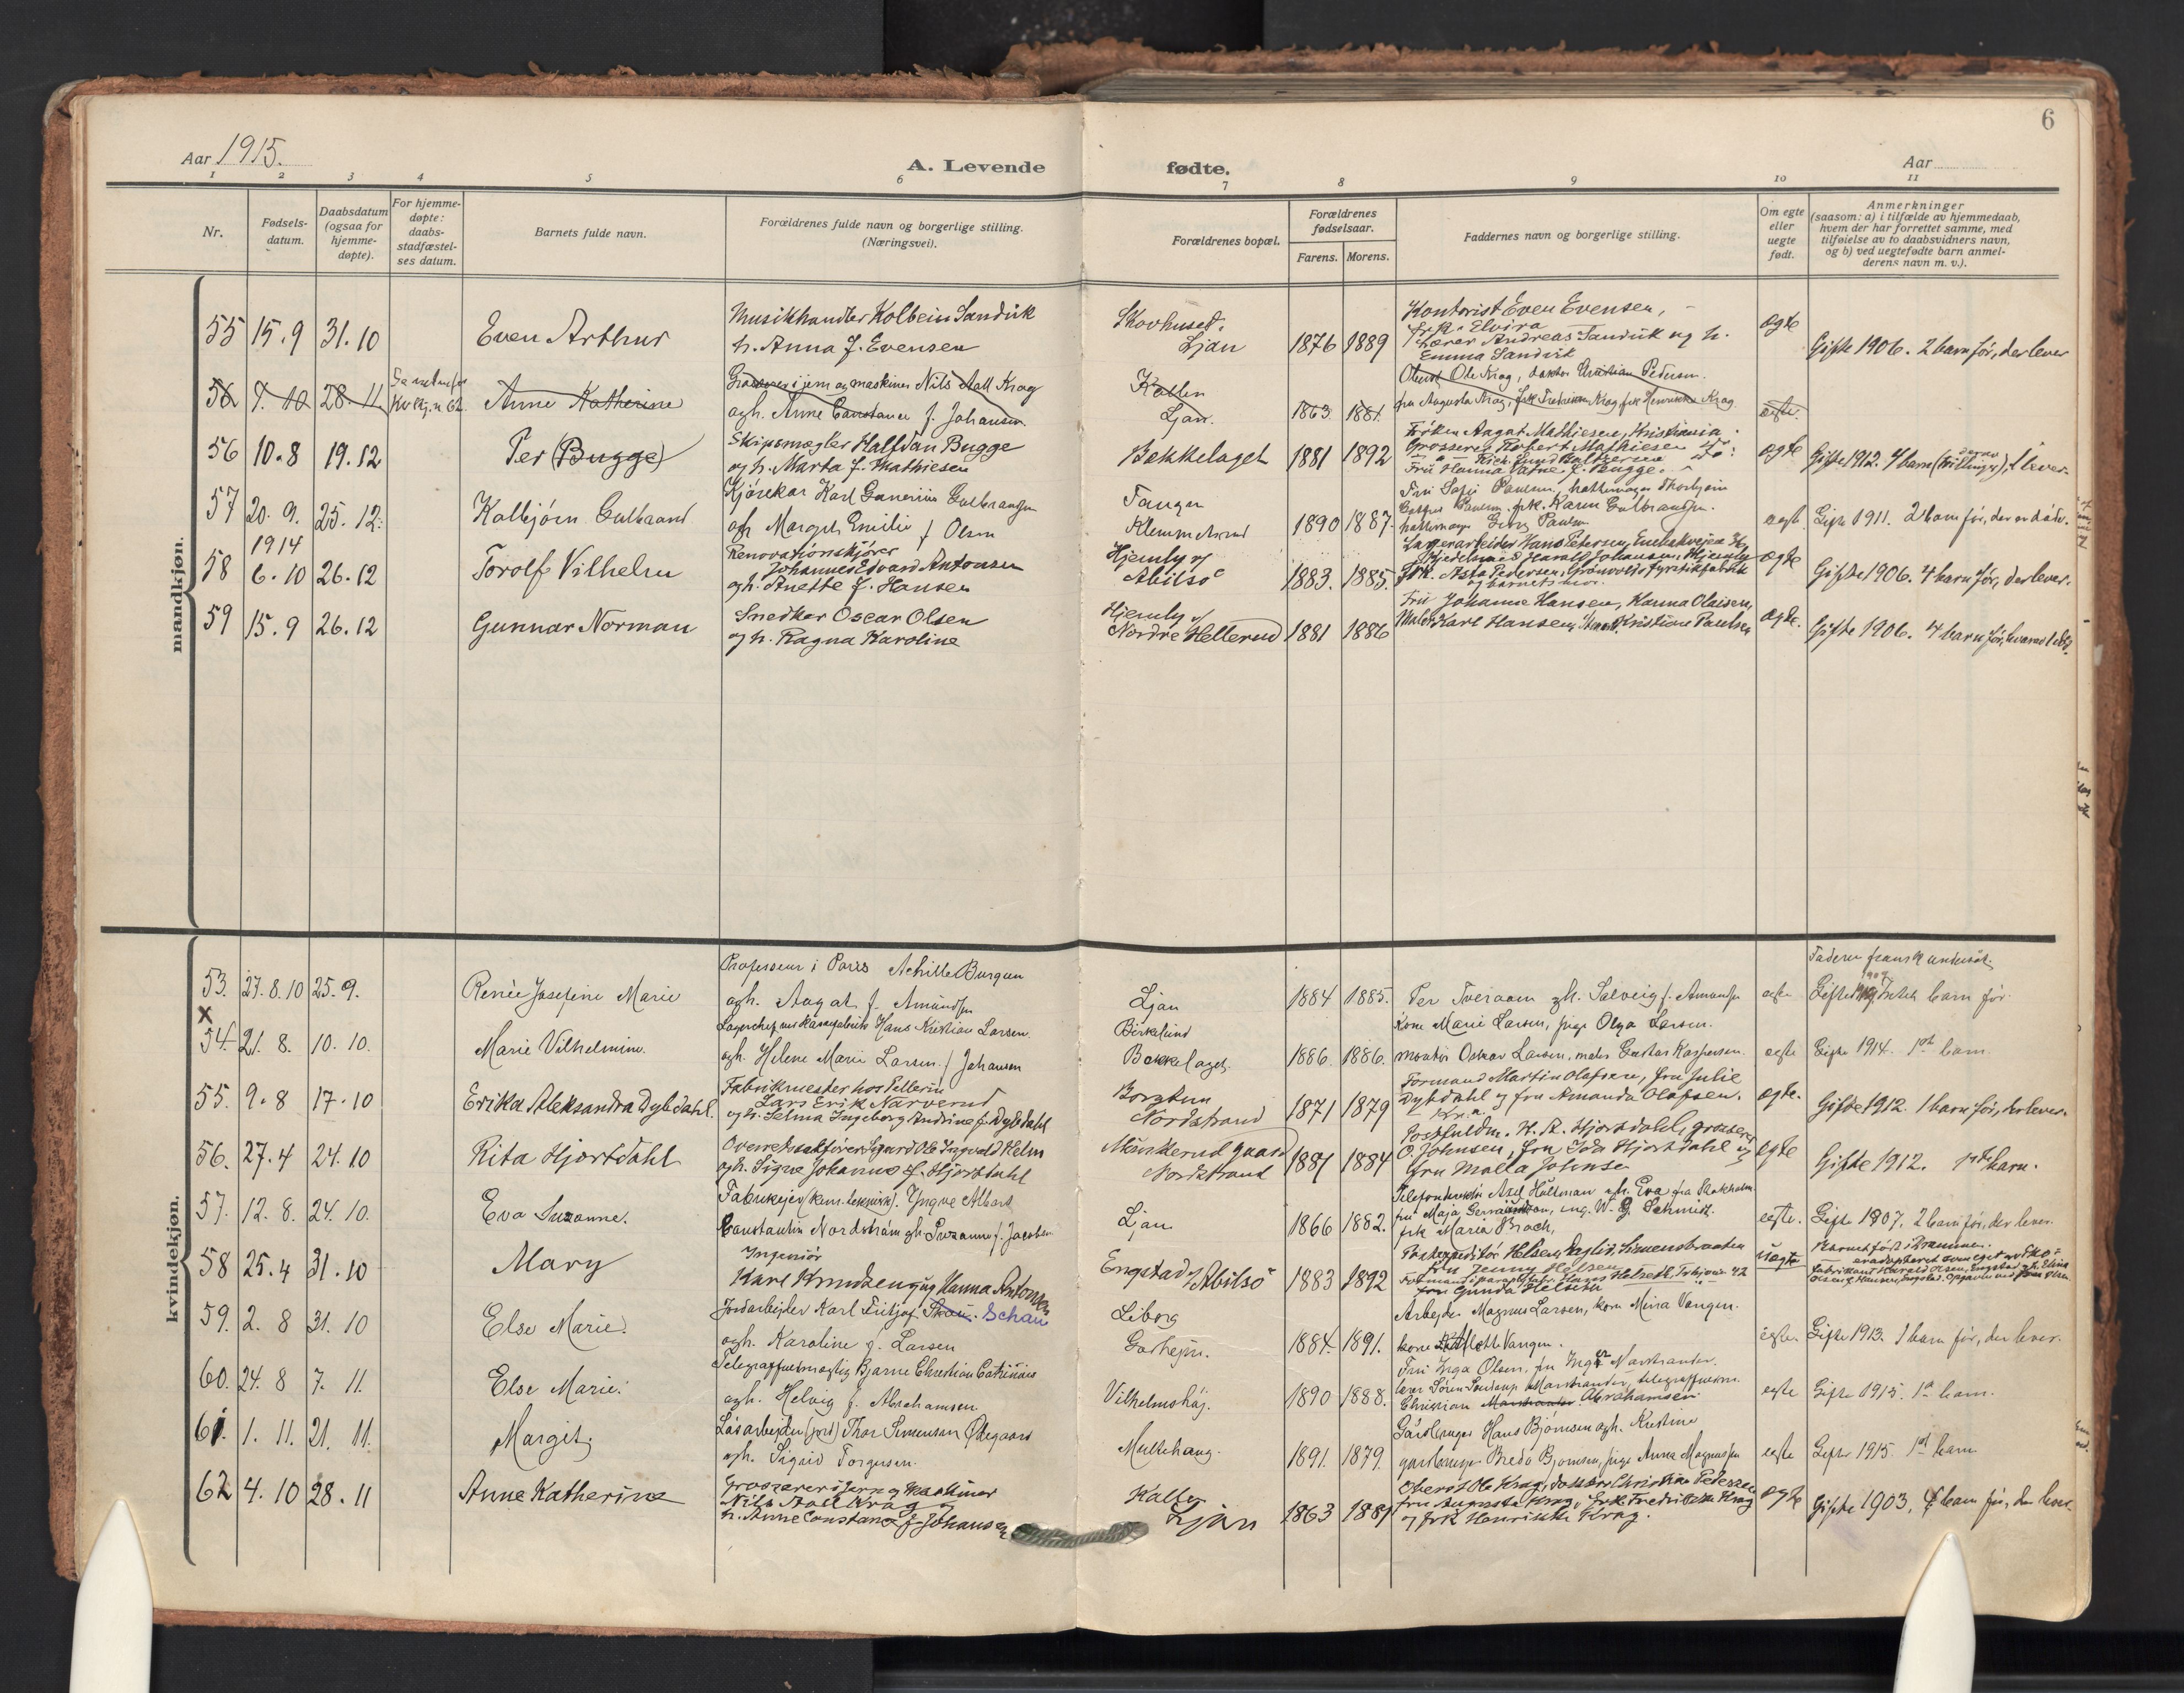 6
Aar 1915.
A. Levende
fødte.
Aar
1 2 3 4 5 6 7 8 9 10 11
Nr.
Fødsels-
datum.
Daabsdatum
(ogsaa for
hjemme-
døpte).
For hjemme-
døpte:
daabs-
stadfæstel-
ses datum.
Barnets fulde navn.
Forældrenes fulde navn og borgerlige stilling.
(Næringsvei).
Forældrenes bopæl.
Forældrenes
fødselsaar.
Farens. Morens.
Faddernes navn og borgerlige stilling.
Om egte
eller
uegte
født.
Anmerkninger
(saasom: a) i tilfælde av hjemmedaab,
hvem der har forrettet samme, med
tilføielse av to daabsvidners navn,
og b) ved uegtefødte barn anmel-
derens navn m. v.).
mandkjøn.
55 15.9 31.10 Even Arthur
Musikhandler Kolbein Sandvik
h. Anna f. Evensen
Skovhuset.
Ljan
1876 1889
Kontorist Even Evensen,
frk. Elvira
Lærer Andreas Sandvik og h.
Emma Sandvik
egte
Gifte 1906. 2 barn før, der lever
56 7.10 28.11 Anne Katherine
Grosserer i jern og maskiner Nils Aall Krag
ogh. Anne Constance f. Johansen
Kolten
Ljan.
1863 1881.
Oberst Ole Krag, doktor Christian Pedersen.
fru Augusta Krag, frk Fredrikke Krag frk Henrikke Krag
egte.
56 10.8 19.12 Per (Bugge)
Skipsmægler Halfdan Bugge
og h. Marta f. Mathiesen
Bækkelaget
1881 1892
Frøken Aagot Mathiesen, Kristiania.
Grosserer Robert Mathiesen do:
Fru Hanna f. Bugge.
egte
Gifte 1912. 4 barn (derav trillinger), 1 lever.
57 20.9. 25.12. Kolbjørn Gulbrand
Kjørekar Karl Gunerius Gulbrandsen
ogh Margit Emilie f Olsen
Tangen
Klemmetsrud
1890 1887.
Fru Sofie Paulsen, hattemager Thorbjørn
Paulsen. frk. Karen Gulbrandsen.
hattemager Georg Paulsen
egte
Gifte 1911. 2 barn før, der er døde.
58 1914 6.10 26.12 Torolf Vilhelm
Renovationskjører
Johannes Edvard Antonsen
og h. Anette f. Hansen
Hjemly v/
Abilsø
1883. 1885.
Lagerarbeider Hans Petersen, Enebakveien
Harald Johansen, Hjemly
Frk. Asta Pedersen, Grønvolds fyrstikfabrik
og barnets mor.
egte
Gifte 1906. 4 barn før, der lever.
59 15.9 26.12 Gunnar Norman
Snedker Oscar Olsen
og h. Ragna Karoline
Hjemly v/
Nordre Hellerud
1881 1886
Fru Johanne Hansen, Hanna Olaisen,
Maler Karl Hansen, Kristian Paulsen
egte.
Gifte 1906. 4 barn før, hvorav 1 død.
kvindekjøn.
53. 27.8.10 25.9. Renée Josefine Marie
Professeur i Paris Achille Burgun
ogh. Aagot f. Amundsen
Ljan
1884 1885.
Per Tveraaen ogh. Solveig f. Amundsen
egte
Faderen fransk undersåt.
Gifte 1909. Intet barn før.
x
54 21.8. 10.10. Marie Vilhelmine.
Lagerchef Hans Kristian Larsen
ogh. Helene Marie Larsen f Johansen
Birkelund
Bækkelaget.
1886. 1886.
Kone Marie Larsen, pige Olga Larsen.
montør Oskar Larsen, maler Gustav Kaspersen.
egte
Gifte 1914. 1st barn.
55. 9.8 17.10 Erika Aleksandra Dybdahl.
Fabrikmester hos Pellerin
Lars Erik Narverud
og h. Selma Ingeborg Andrine f. Dybdahl
Borgtun
Nordstrand
1871 1879
Formand Martin Olafsen, fru Julie
Dybdahl og fru Amanda Olafsen.
Kr.a
egte.
Gifte 1912. 1 barn før, der lever.
56. 27.4 24.10 Rita Hjortdahl
Overretssakfører Sigurd Ole Ingvald Helm
ogh. Signe Johanne f. Hjortdahl
Munkerud gaard
Nordstrand
1881 1884
Postfuldm. H. R. Hjortdahl, grosserer
O. Johnsen, fru Ida Hjortdahl og
fru Malla Johnsen
egte
Gifte 1912. 1ste barn.
57. 12.8. 24.10. Eva Suzanne.
Fabrikejer (kem. teknisk). Yngve Albert
Constantin Nordstrøm ogh. Suzanne f. Jacobsen
Ljan
1866 1882.
Telefondirektør Axel Hultman ogh. Eva fra Stokholm
fru Maja, ing. W. G. Schmidt.
frk Maria Broch,
egte.
Gifte 1907. 2 barn før, der lever.
58 25.4 31.10 Mary
Ingeniør
Karl Knudsen og ug Hanna Antonsen
Engstad v/ Abilsø
1883 1892
Postexpeditør Helsen, Daglid, Simensbraaten
fru Jenny Helsen
Hans Helseth,
fru Gunda Helseth
uegte
Barnet født i Drammen.
er adopteret som eget av Sko-
fabrikant Harald Olsen, Engstad
59. 2.8 31.10 Else Marie.
Jordarbejder Karl Fritjof Skau. Schau
ogh. Karoline f. Larsen
Liborg
1884. 1891.
Arbejder Magnus Larsen, kone Mina Vangen.
kone Lotte Vangen.
egte
Gifte 1913. 1 barn før, der lever.
60. 24.8 7.11. Else Marie.
Telegraffuldmægtig Bjarne Christian
ogh. Helvig f. Abrahamsen.
Vilhelmshøj.
1890 1888.
Fru Inga Olsen, fru Inger Marstrander.
lærer Søren Marstrander, telegraffuldm.
Christian Marstrander Abrahamsen
egte
Gifte 1915. 1st barn.
61. 1.11. 21.11. Margit
Løsarbejder (jord) Thor Simensen Ødegaard
ogh. Sigrid Torgersen.
Multehaug.
1891. 1879.
Gårdbruger Hans Bjørnsen ogh. Kristine
gårdbruger Bredo Bjørnsen, pige Anna Magnussen
egte
Gifte 1915. 1st barn
62 4.10 28.11 Anne Katherine
Grosserer i jern og maskiner
Nils Aall Krag og
h. Anne Constance f. Johansen
Kolten
Ljan
1863 1881
Oberst Ole Krag, doktor Christian Pedersen
fru Augusta Krag, frk Fredrikke Krag
og frk Henrikke Krag.
egte
Gifte 1903. 4 barn før, der lever.